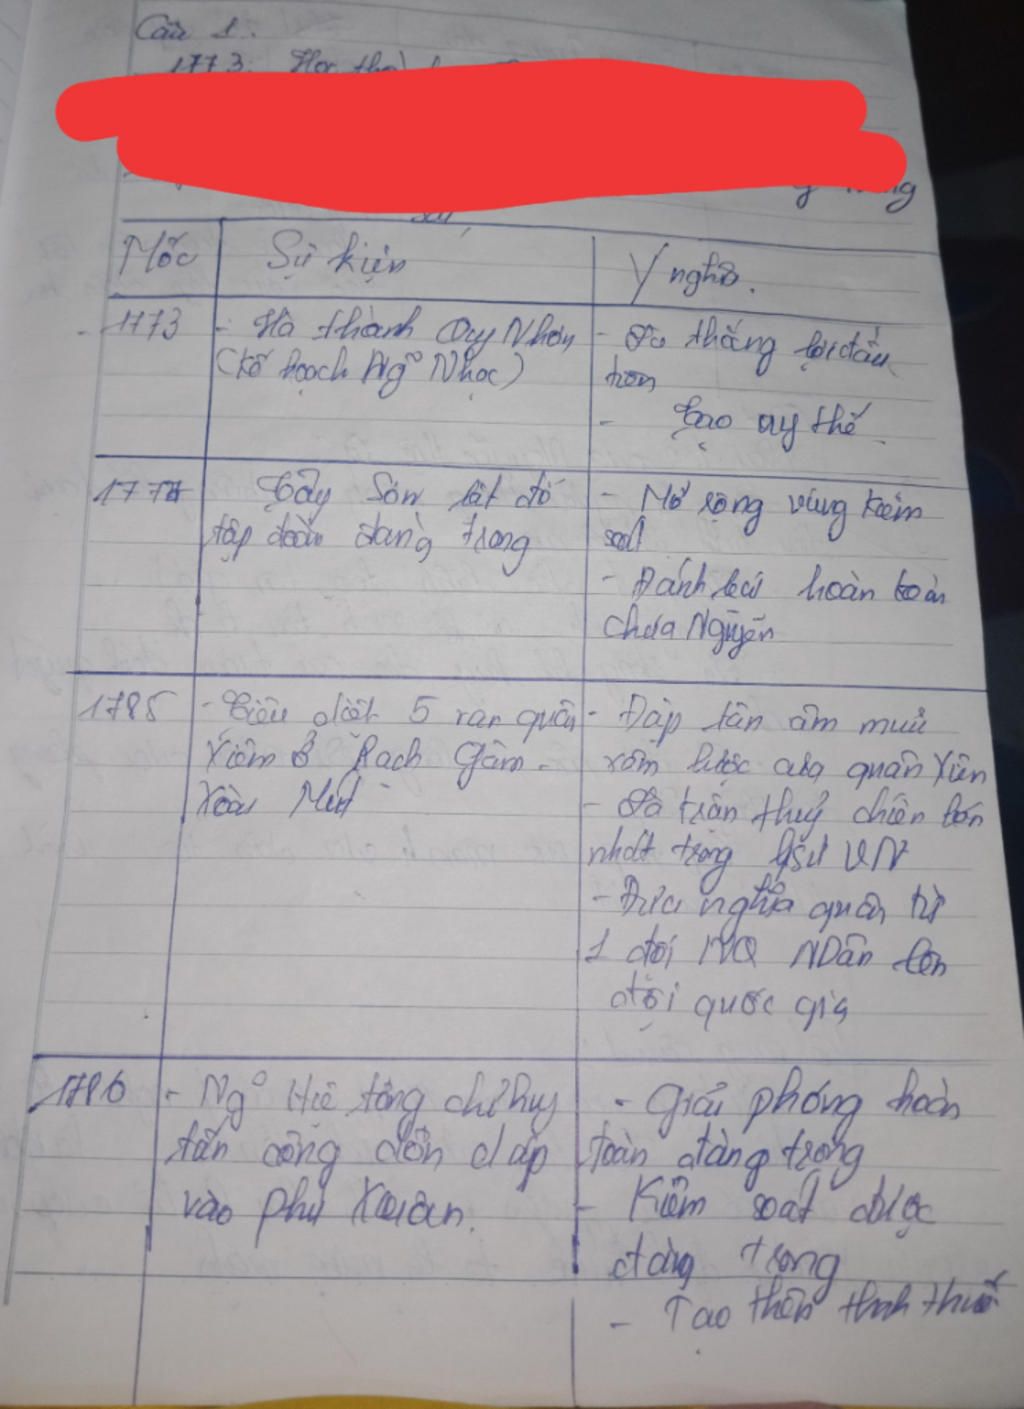 Câu 1.
1773:
Mốc Sự kiện Ý nghĩa.
1773 - Hà thành Quy Nhơn - Là thắng lợi đầu
(Kế hoạch Ng~ Nhạc) tiên
- Tạo uy thế
1777 Tây Sơn lật đổ - Mở rộng vùng kiểm
tập đoàn đàng trong soát
- Đánh bại hoàn toàn
chúa Nguyễn
1785 - Tiêu diệt 5 vạn quân - Đập tan âm mưu
Xiêm ở Rạch Gầm - xâm lược của quân Xiêm
Xoài Mút - Là trận thuỷ chiến lớn
nhất trong lịsử VN
- Đưa nghĩa quân từ
1 đội NDân lên
đội quốc gia
1786 - Ng~ Huệ tổng chỉ huy - Giải phóng hoàn
tấn công dồn dập toàn đàng trong
vào phú Xuân. - Kiểm soát được
đàng trong
- Tạo thêm thanh thế